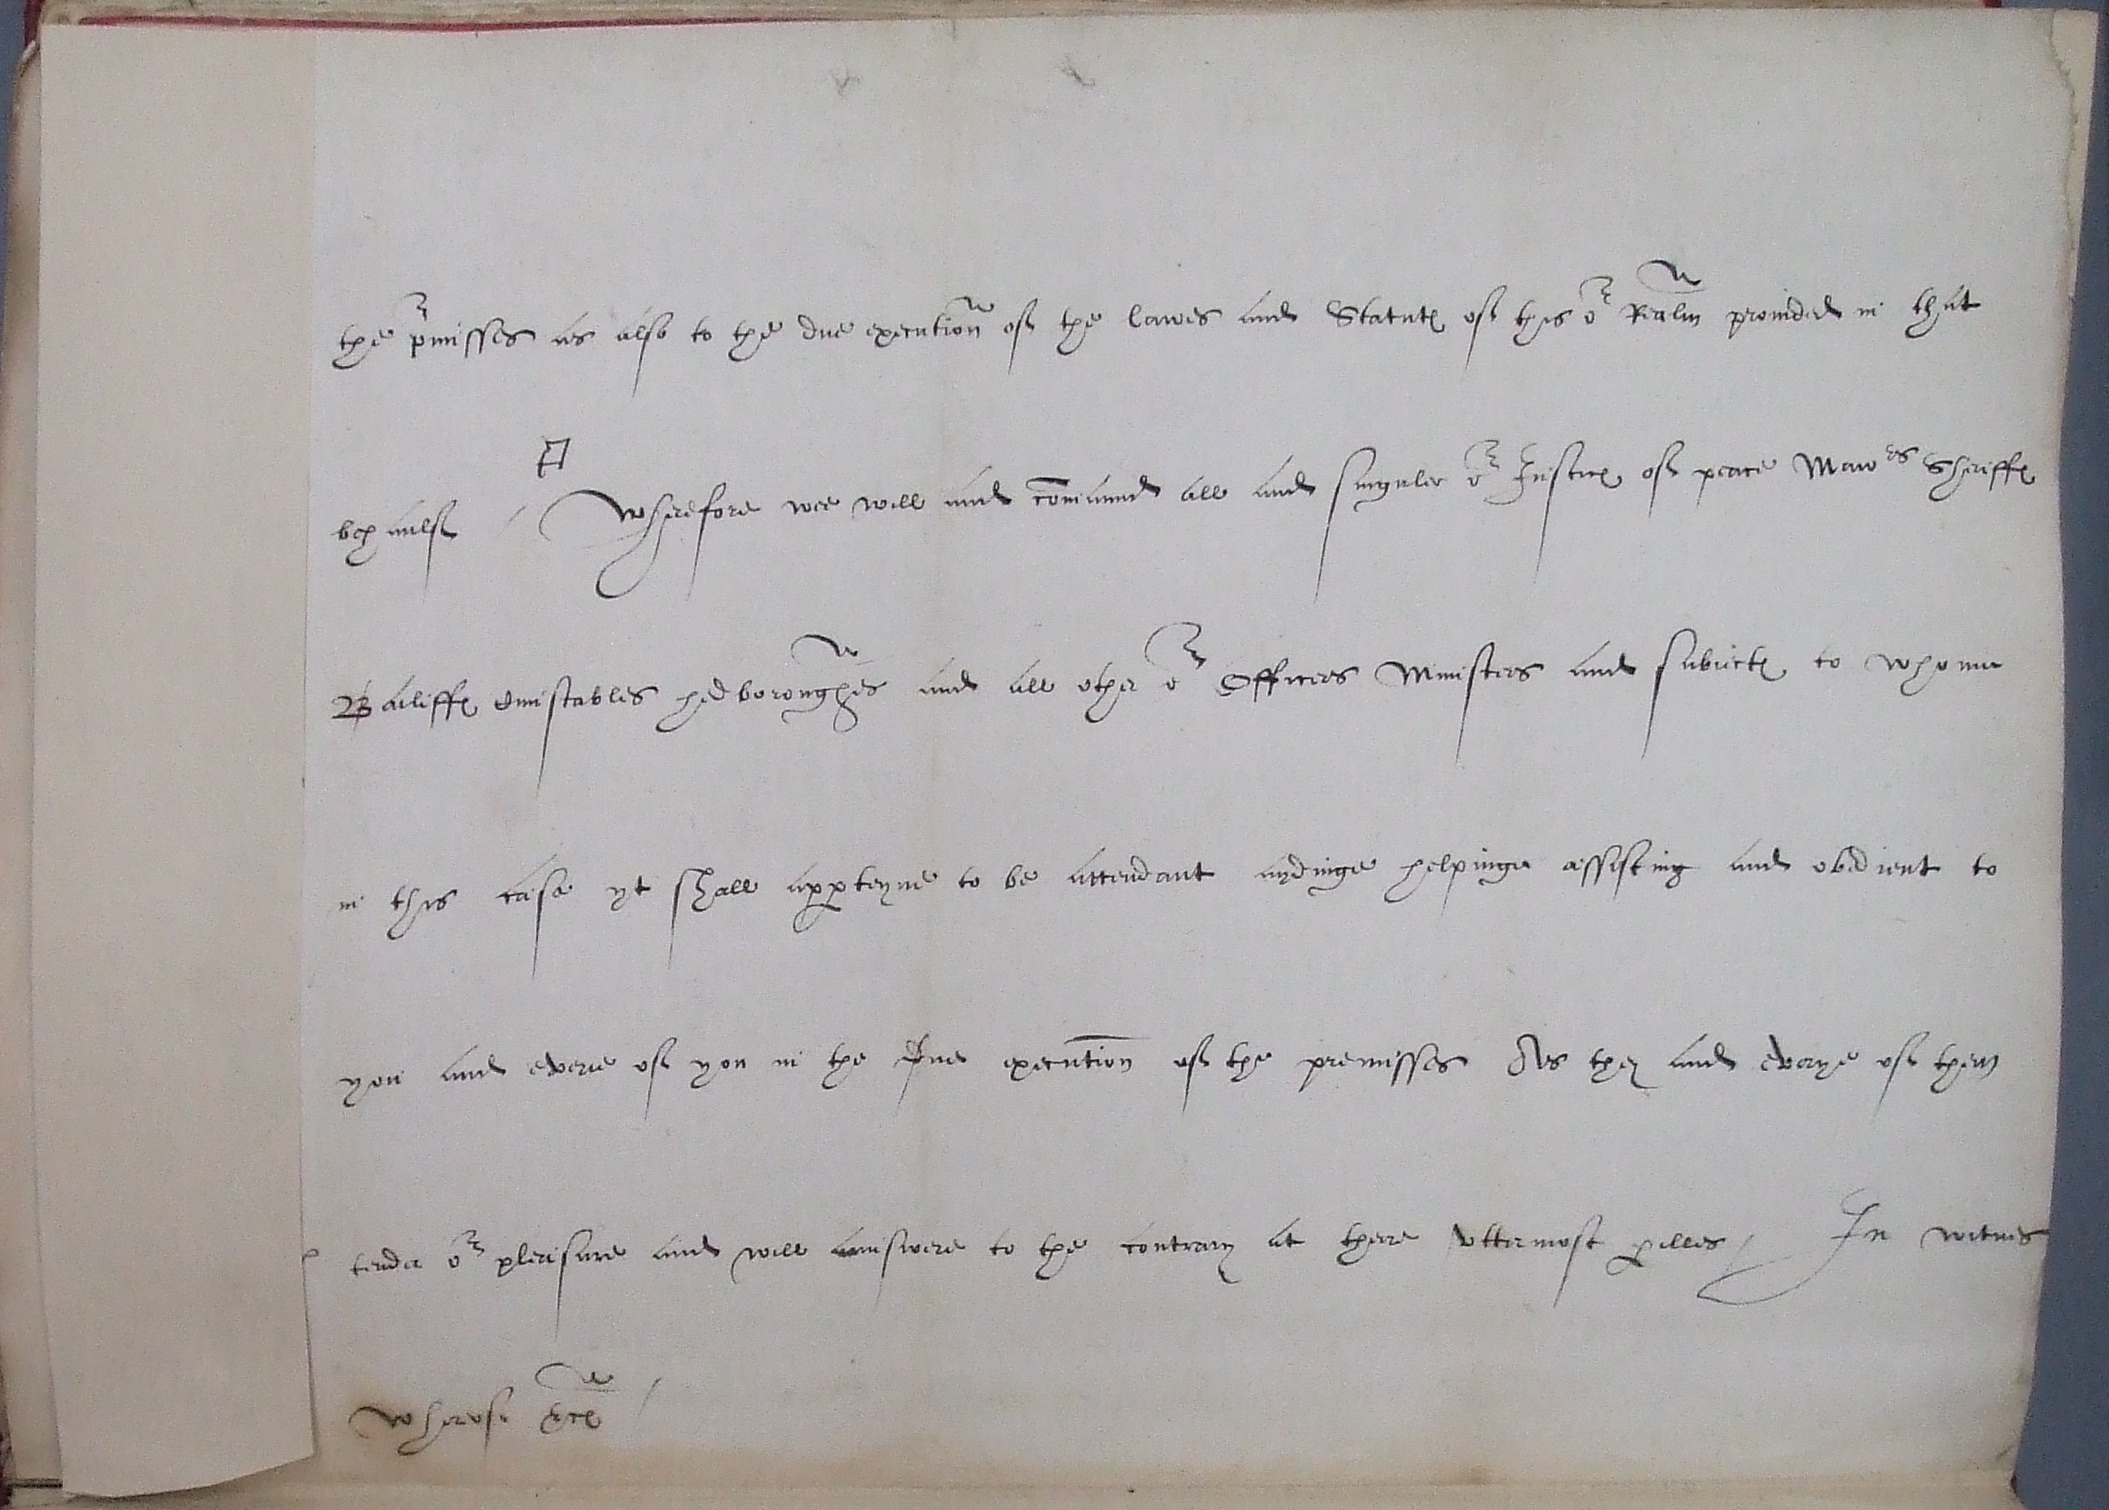 the p^rmisses as also to the due execution of the lawes and Statutes of this o^r Realm prouided in that
behaulf / Wherefore wee will and comaund all and singuler o^r Justices of peace Maio^rs Sheriffes
Bailiffes Constables hedboroughes and all other o^r Officers Ministers and subiectes to whome
in this case yt shall apperteyne to be attendant aydinge helpinge assisting and obedient to
you and euerie of you in the due execution of the premisses As they and euerye of them
tender o^r pleasure and will answere to the contrary at there vttermost perilles / In witnes
wherof &c /